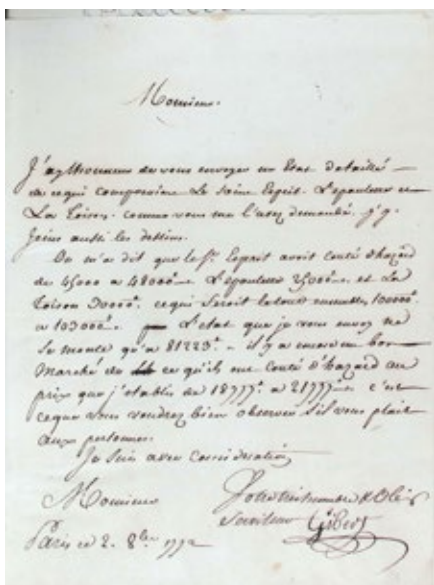 Monsieur.
J'ay l'honneur de vous envoyer un Etat detaillé
de ce qui composoient Le Saint Esprit. L'epaulette et
La Toison. comme vous me l'avez demandé. j'y
Joins aussi les dessins.
On m'a dit que le St. Esprit avoit couté d'hazard
de 45000 a 48000# L'epaulette 25000# et La
Toison 30000# ce qui seroit le tout ensemble 100000#
a 103000# L'etat que je vous envoy ne
se monte qu'a 81223# il y a encore un bon
Marché de ce qu'ils ont couté d'hazard au
prix que j'etablis de 18777# a 21777# c'est
ce que vous voudrez bien observer s'il vous plait
aux personnes.
Je suis avec consideration
Monsieur
Votre tres humble & Obeis
Serviteur
Paris ce 2. 8bre 1792